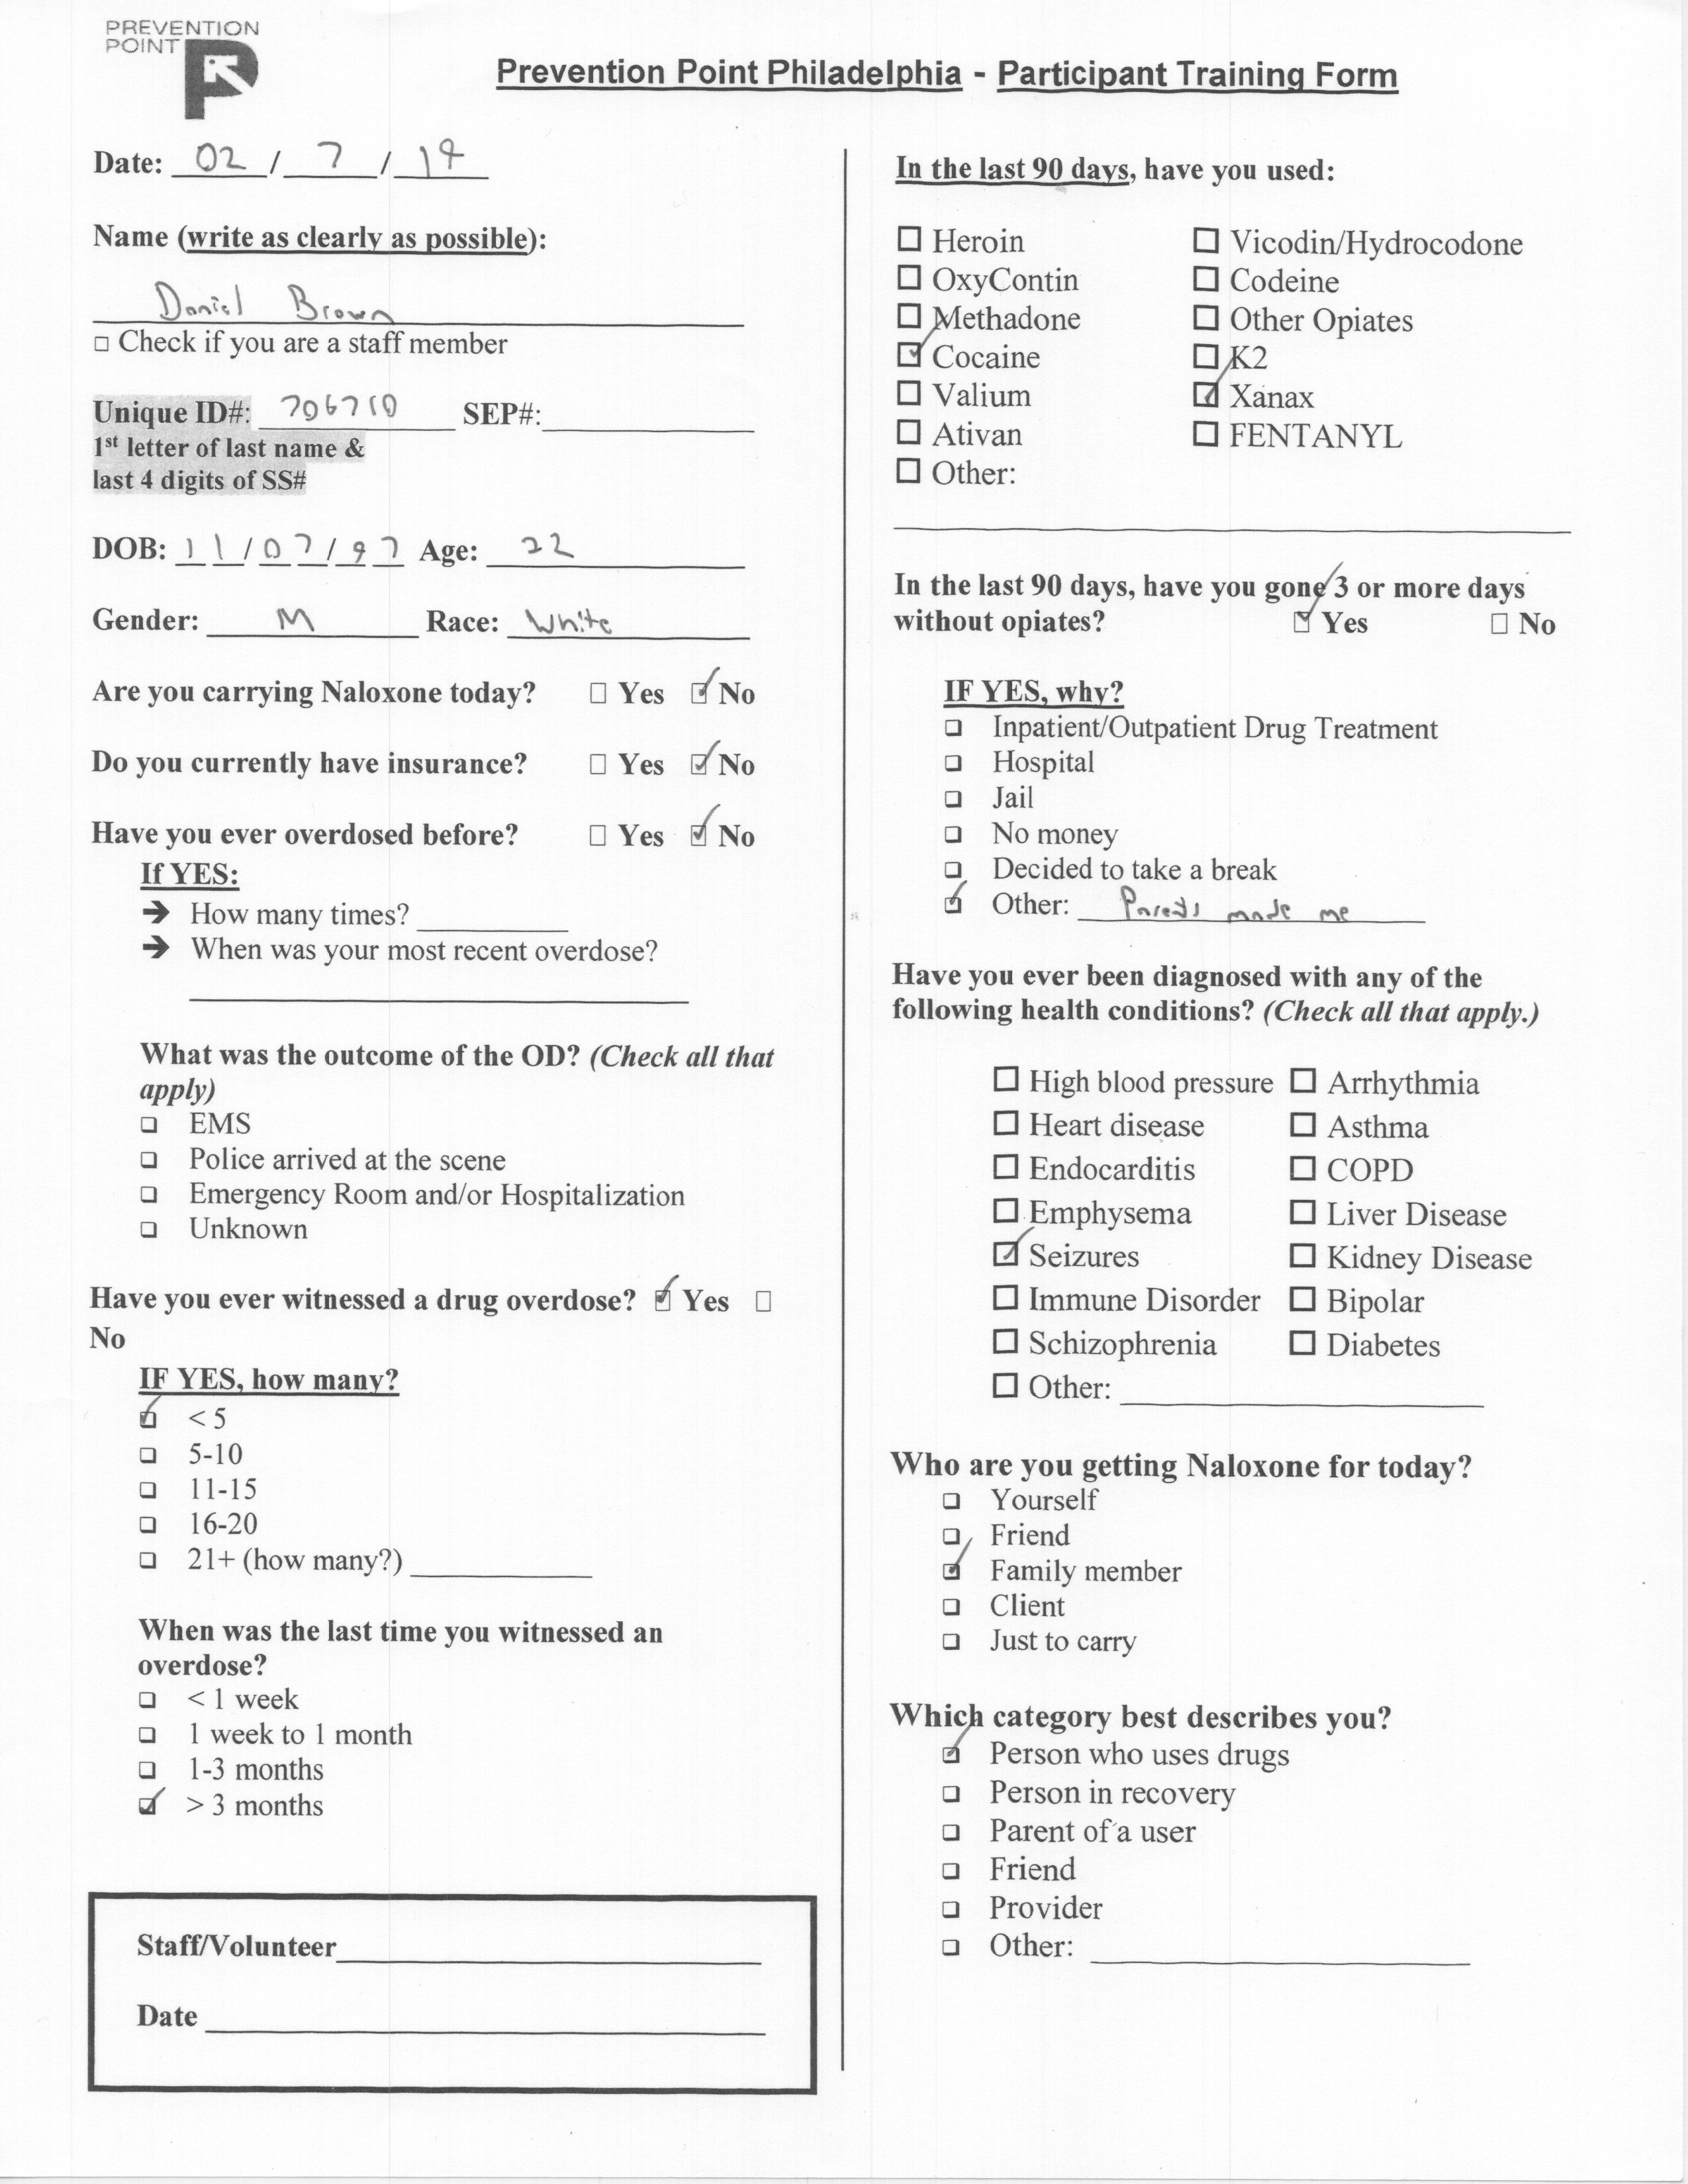 PREVENTION
POINT
Prevention Point Philadelphia - Participant Training Form
Date: 02 / 7 / 19
Name (write as clearly as possible):
Daniel Brown
☐ Check if you are a staff member
Unique ID#: 706710 SEP#:
1st letter of last name &
last 4 digits of SS#
DOB: 11/07/97 Age: 22
Gender: M Race: White
Are you carrying Naloxone today? ☐ Yes ☑ No
Do you currently have insurance? ☐ Yes ☑ No
Have you ever overdosed before? ☐ Yes ☑ No
If YES:
➔ How many times?
➔ When was your most recent overdose?
What was the outcome of the OD? (Check all that
apply)
☐ EMS
☐ Police arrived at the scene
☐ Emergency Room and/or Hospitalization
☐ Unknown
Have you ever witnessed a drug overdose? ☑ Yes ☐
No
IF YES, how many?
☑ < 5
☐ 5-10
☐ 11-15
☐ 16-20
☐ 21+ (how many?)
When was the last time you witnessed an
overdose?
☐ < 1 week
☐ 1 week to 1 month
☐ 1-3 months
☑ > 3 months
Staff/Volunteer
Date
In the last 90 days, have you used:
☐ Heroin ☐ Vicodin/Hydrocodone
☐ OxyContin ☐ Codeine
☐ Methadone ☐ Other Opiates
☑ Cocaine ☐ K2
☐ Valium ☑ Xanax
☐ Ativan ☐ FENTANYL
☐ Other:
In the last 90 days, have you gone 3 or more days
without opiates? ☑ Yes ☐ No
IF YES, why?
☐ Inpatient/Outpatient Drug Treatment
☐ Hospital
☐ Jail
☐ No money
☐ Decided to take a break
☑ Other: Parents made me
Have you ever been diagnosed with any of the
following health conditions? (Check all that apply.)
☐ High blood pressure ☐ Arrhythmia
☐ Heart disease ☐ Asthma
☐ Endocarditis ☐ COPD
☐ Emphysema ☐ Liver Disease
☑ Seizures ☐ Kidney Disease
☐ Immune Disorder ☐ Bipolar
☐ Schizophrenia ☐ Diabetes
☐ Other:
Who are you getting Naloxone for today?
☐ Yourself
☐ Friend
☑ Family member
☐ Client
☐ Just to carry
Which category best describes you?
☑ Person who uses drugs
☐ Person in recovery
☐ Parent of a user
☐ Friend
☐ Provider
☐ Other: